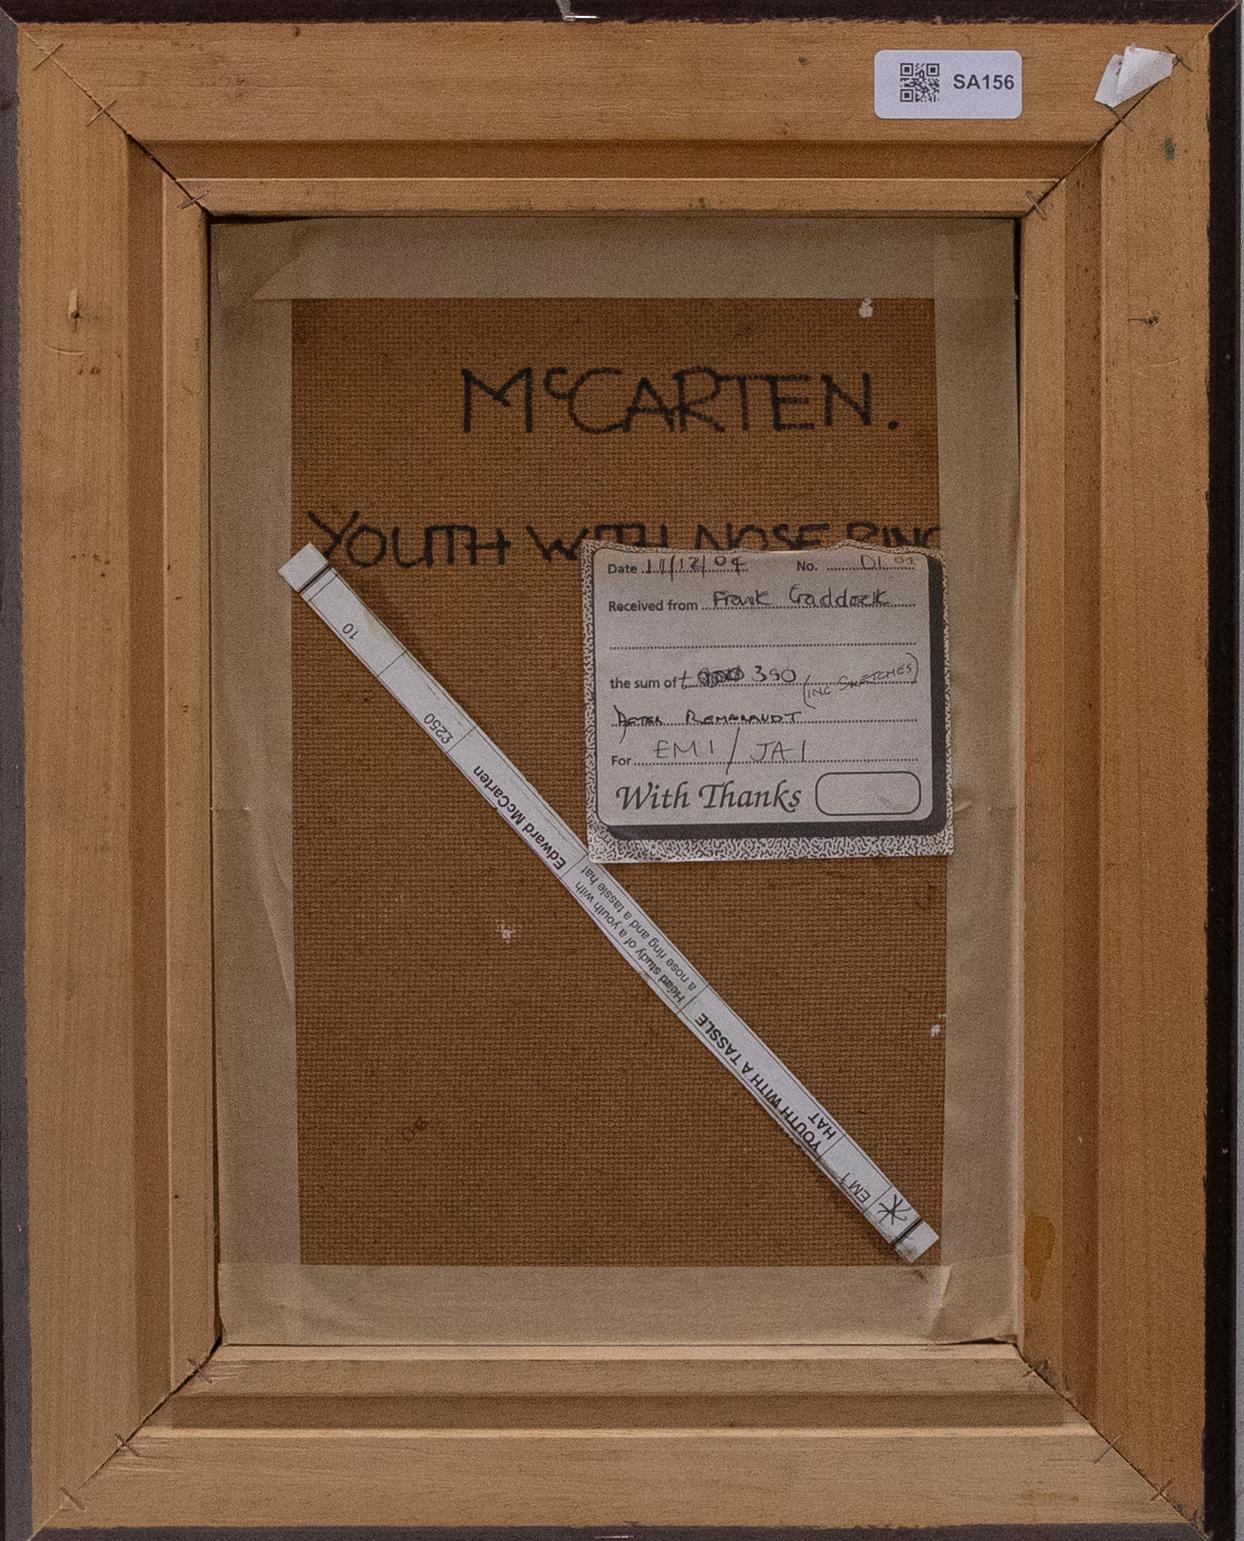 SA156
McCARTEN.
YOUTH WITH NOSE RING
Date 11/12/04 No. 01
Received from Frank Caddock
the sum of £ 350 (INC SKETCHES)
AFTER REMBRANDT
For EM1 / JA1
With Thanks
10
£250
Edward McCarten
Head study of a youth with
a nose ring and a tassle hat
YOUTH WITH A TASSLE
HAT
EM1